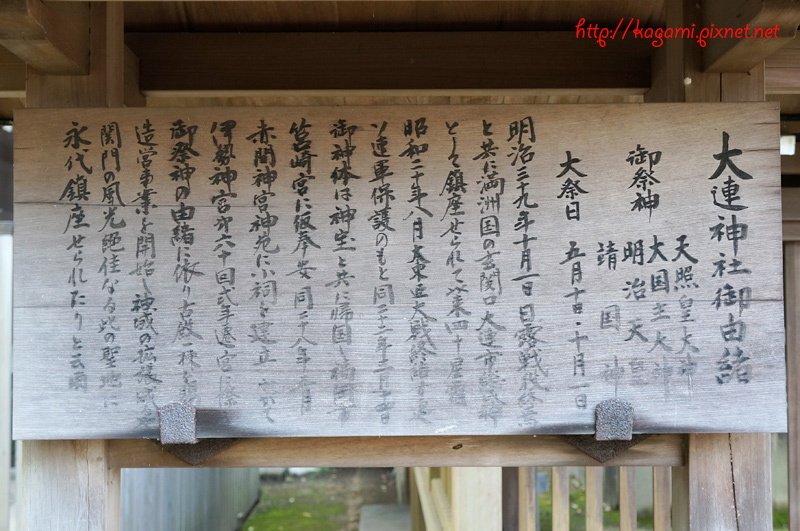 http://kagami.pixnet.net
大連神社御由緒
御祭神
天照皇大神
大国主大神
明治天皇
靖国神
大祭日 五月十日・十月一日
明治三十九年十月一日日露戦役終
と共に満洲国の玄関口大連市
として鎮座せられて以来四十星霜
昭和二十年八月大東亜大戦終結
ソ連軍保護のもと同二十二年三月十
御神体は神宝と共に帰国し福岡市
筥崎宮に仮奉安同二十八年 月
赤間神宮神苑に小祠を建立
伊勢神宮第六十回式年遷宮に際
御祭神の由緒に依り古殿一棟を
造営事業を開始し神域の拡張
関門の風光絶佳なる此の聖地に
永代鎮座せられたりと云爾